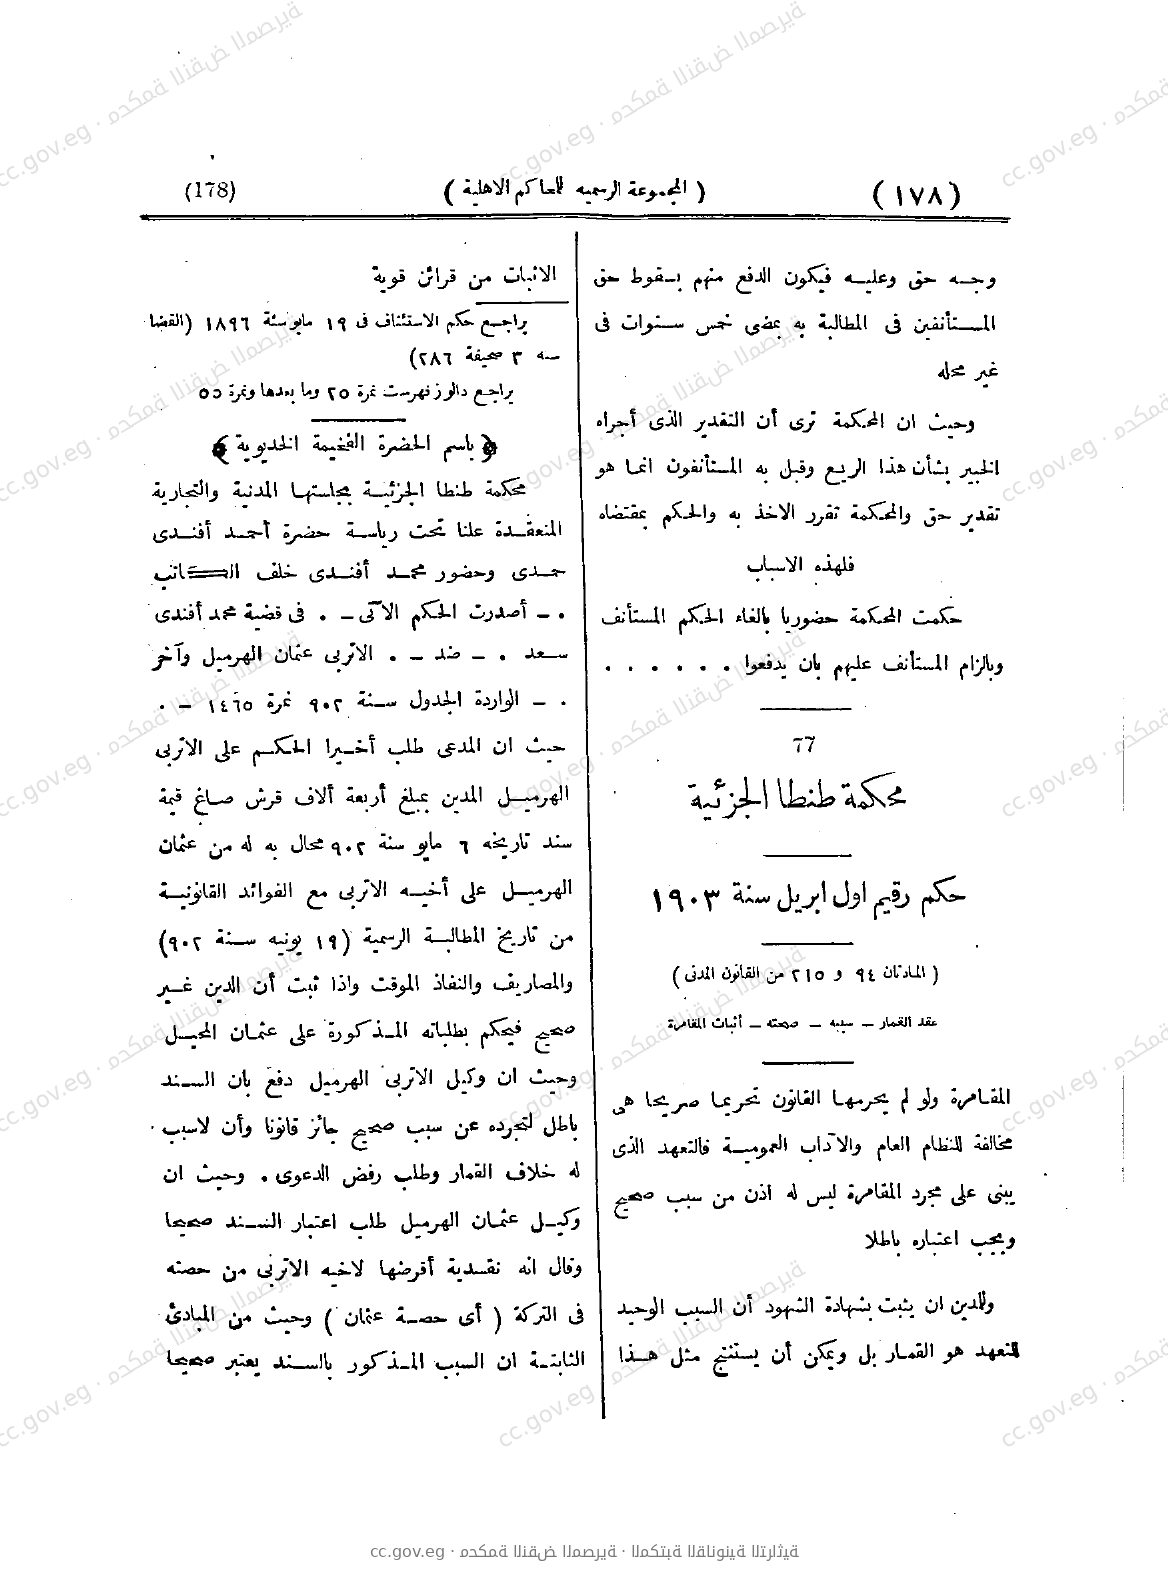 (١٧٨) ( المجموعة الرسميه للمحاكم الاهلية ) (178)
وجـه حق وعليـه فيكون الدفع منهم بسقوط حق
المستأنفين فى المطالبة به بمضى خمس سنوات فى
غير محله
وحيث ان المحكمة ترى أن التقدير الذى أجراه
الخبير بشأن هذا الريع وقبل به المستأنفون انما هو
تقدير حق والمحكمة تقرر الاخذ به والحكم بمقتضاه
فلهذه الاسباب
حكمت المحكمة حضوريا بالغاء الحكم المستأنف
وبالزام المستأنف عليهم بان يدفعوا . . . . . .
77
محكمة طنطا الجزئية
حكم رقيم اول ابريل سنة ١٩٠٣
( المادتان ٩٤ و ٢١٥ من القانون المدنى )
عقد القمار – سببه – صحته – أثبات المقامرة
المقامرة ولو لم يحرمها القانون تحريما صريحا هى
مخالفة للنظام العام والآداب العمومية فالتعهد الذى
يبنى على مجرد المقامرة ليس له اذن من سبب صحيح
ويجب اعتباره باطلا
وللمدين ان يثبت بشهادة الشهود أن السبب الوحيد
للتعهد هو القمار بل ويمكن أن يستنتج مثل هذا
الاثبات من قرائن قوية
يراجع حكم الاستئناف فى ١٩ مايو سنة ١٨٩٦ (القضا
سنه ٣ صحيفة ٢٨٦)
يراجع دالوز فهرست نمرة ٢٥ وما بعدها ونمرة ٥٥
﴿ باسم الحضرة الفخيمة الخديوية ﴾
محكمة طنطا الجزئية بجلستها المدنية والتجارية
المنعقدة علنا تحت رياسة حضرة أحمد أفندى
حمدى وحضور محمد أفندى خلف الكاتب
٠ – أصدرت الحكم الآتى – ٠ فى قضية محمد أفندى
سعد ٠ – ضد – ٠ الاتربى عثمان الهرميل وآخر
٠ – الواردة الجدول سنة ٩٠٢ نمرة ١٤٦٥ – ٠
حيث ان المدعى طلب أخيرا الحكم على الاتربى
الهرميل المدين بمبلغ أربعة ألاف قرش صاغ قيمة
سند تاريخه ٦ مايو سنة ٩٠٢ محال به له من عثمان
الهرميل على أخيه الاتربى مع الفوائد القانونية
من تاريخ المطالبة الرسمية (١٩ يونيه سنة ٩٠٢)
والمصاريف والنفاذ الموقت واذا ثبت أن الدين غير
صحيح فيحكم بطلباته المذكورة على عثمان المحيل
وحيث ان وكيل الاتربى الهرميل دفع بان السند
باطل لتجرده عن سبب صحيح جائز قانونا وأن لاسبب
له خلاف القمار وطلب رفض الدعوى . وحيث ان
وكيل عثمان الهرميل طلب اعتبار السند صحيحا
وقال انه نقدية أقرضها لاخيه الاتربى من حصته
فى التركة ( أى حصة عثمان ) وحيث من المبادئ
الثابتة ان السبب المذكور بالسند يعتبر صحيحا
cc.gov.eg · محكمة النقض المصرية · المكتبة القانونية التراثية